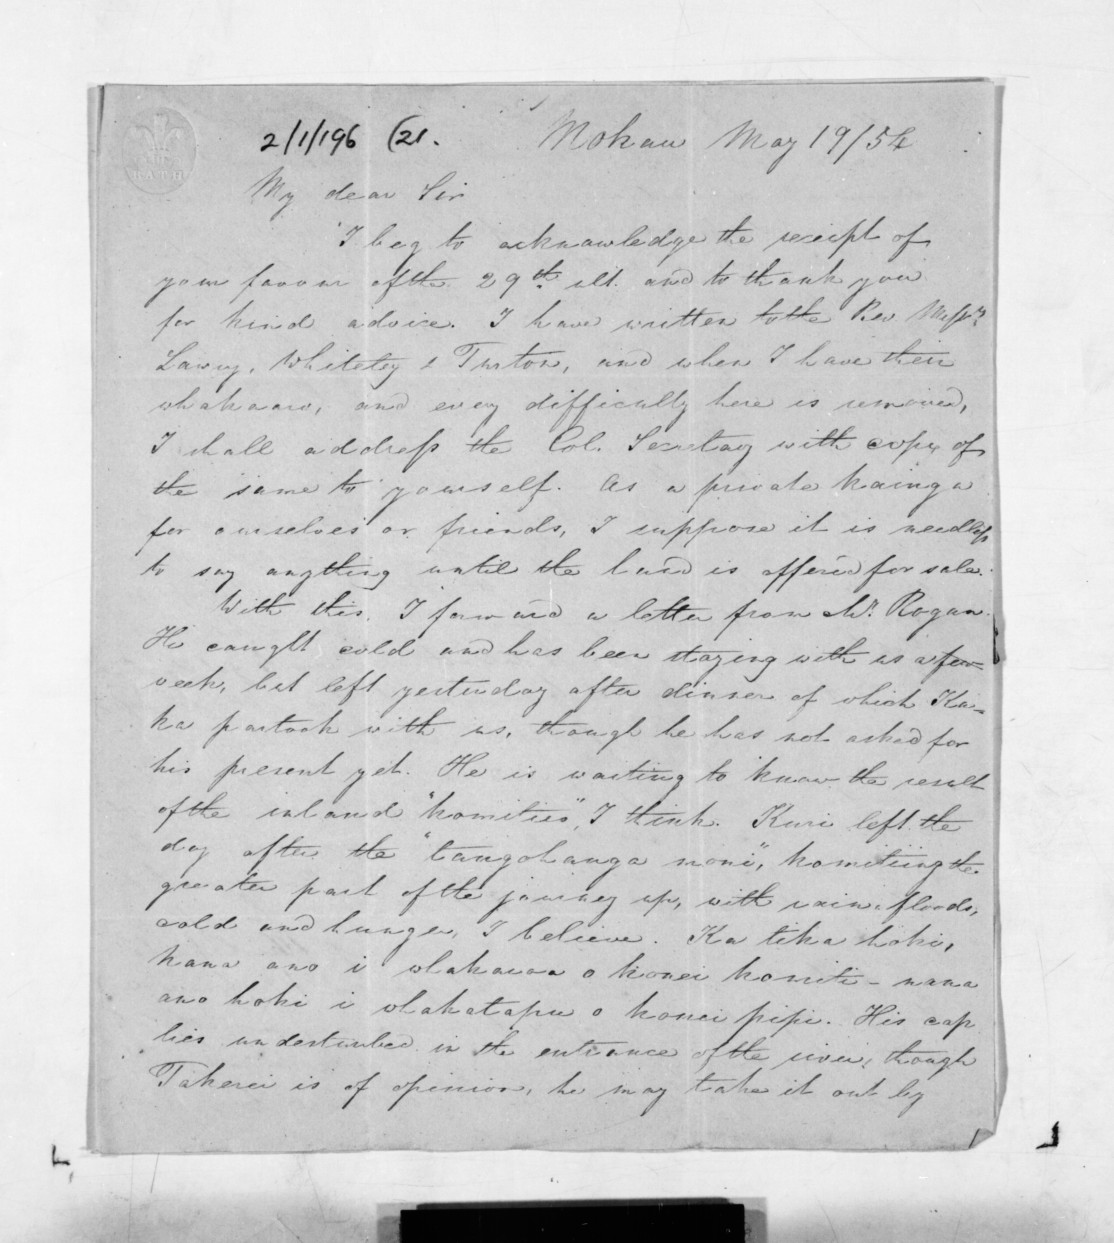 BATH
2/1/196 (21.
Mokau May 19/54
My dear Sir
I beg to acknowledge the receipt of
your favour of the 29th. ult. and to thank you
for kind advice. I have written to the Rev Messrs
Lawry, Whiteley & Turton, and when I have their
whakaaro, and every difficulty here is removed,
I shall address the Col. Secretary with copy of
the same to yourself. As a private kainga
for ourselves or friends, I suppose it is needless
to say anything until the land is offered for sale.
With this, I forward a letter from Mr. Rogan.
He caught cold and has been staying with us a few
week, but left yesterday after dinner of which Ka=
ka partook with us, though he has not asked for
his present yet. He is waiting to know the result
of the inland "komities", I think. Kuri left the
day after the "tangohanga moni", komitiing the
greater part of the journey up, with rain, floods,
cold and hunger, I believe. Ka tika hoki,
nana ano i whakanoa o konei komiti - nana
ano hoki i whakatapu o konei pipi. His cap
lies undisturbed in the entrance of the river, though
Takerei is of opinion, he may take it out by